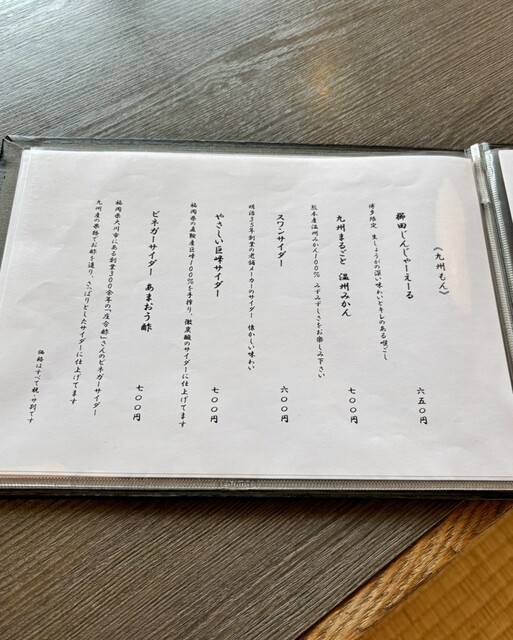 《九州もん》
櫛田じんじゃーえーる 六五〇円
博多限定 生しょうがの深い味わいとキレのある喉ごし
九州まるごと 温州みかん 七〇〇円
熊本産温州みかん100% みずみずしさをお楽しみ下さい
スワンサイダー 六〇〇円
明治35年創業の老舗メーカーのサイダー 懐かしい味わい
やさしい巨峰サイダー 七〇〇円
福岡県の直鞍産巨峰100%を手搾り、微炭酸のサイダーに仕上げてます
ビネガーサイダー あまおう酢 七〇〇円
福岡県大川市にある創業300余年の「庄分酢」さんのビネガーサイダー
九州産の果物でお酢を造り、さっぱりとしたサイダーに仕上げてます
価格はすべて税・サ別です